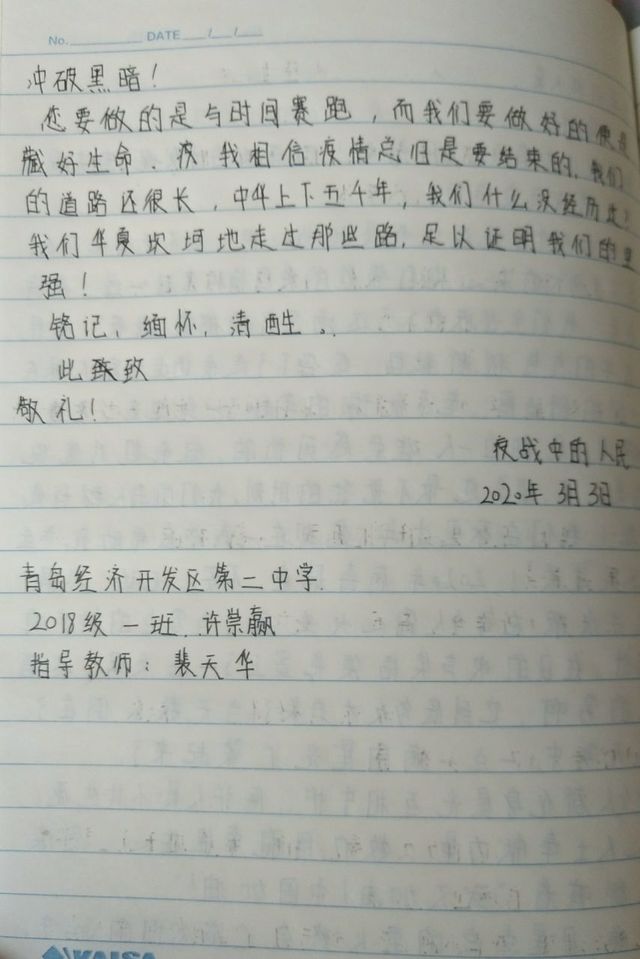 No. DATE / /
冲破黑暗！
您要做的是与时间赛跑，而我们要做好的便是
藏好生命、彼我相信疫情总归是要结束的，我们
的道路还很长，中华上下五千年，我们什么没经历过！
我们华夏坎坷地走过那些路，足以证明我们的坚
强！
铭记，缅怀，清醒。
此致
敬礼！
疫战中的人民
2020年3月3日
青岛经济开发区第二中学
2018级一班 许崇赢
指导教师：裴天华
KAISA